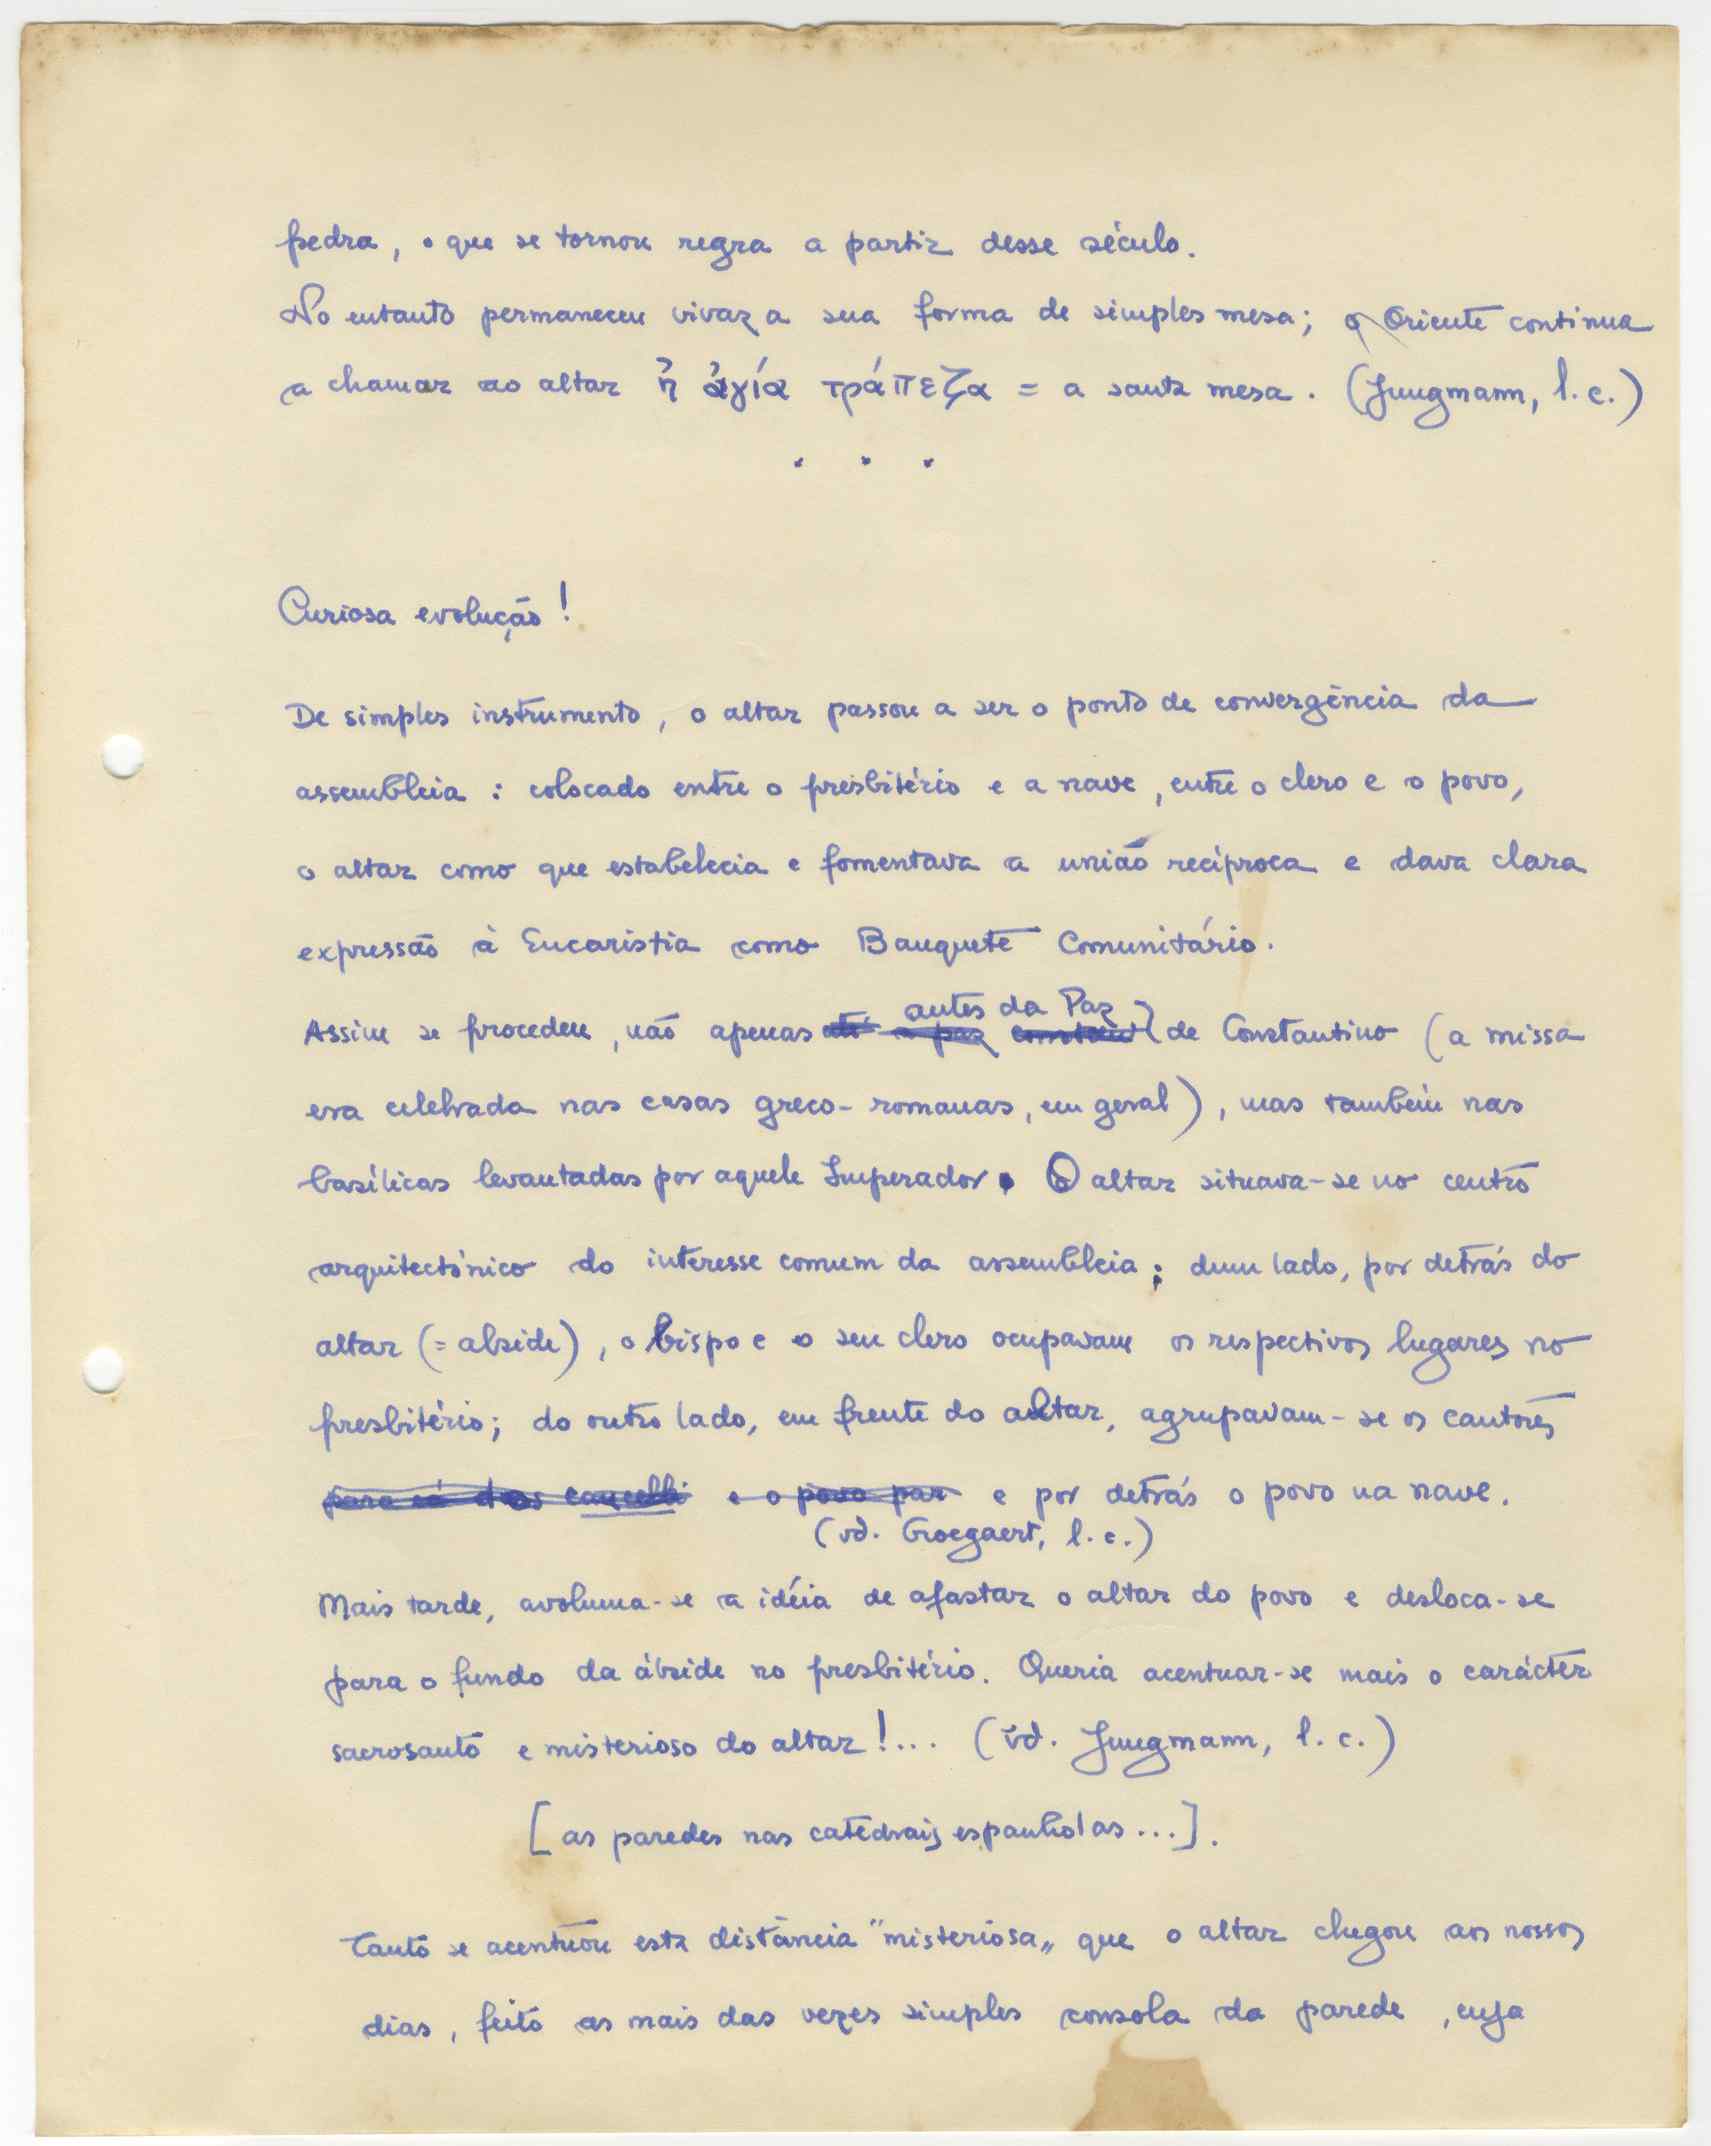 pedra, o que se tornou regra a partir desse século.
No entanto permaneceu vivaz a sua forma de simples mesa; o Oriente continua
a chamar ao altar ἡ ἁγία τράπεζα = a santa mesa. (Jungmann, l.c.)
. . .
Curiosa evolução!
De simples instrumento, o altar passou a ser o ponto de convergência da
assembleia: colocado entre o presbitério e a nave, entre o clero e o povo,
o altar como que estabelecia e fomentava a união recíproca e dava clara
expressão à Eucaristia como Banquete Comunitário.
antes da Paz
Assim se procedeu, não apenas até a paz de Constantino (a missa
era celebrada nas casas greco-romanas, em geral), mas também nas
basílicas levantadas por aquele Imperador. O altar situava-se no centro
arquitectónico do interesse comum da assembleia; dum lado, por detrás do
altar (= abside), o bispo e o seu clero ocupavam os respectivos lugares no
presbitério; do outro lado, em frente do altar, agrupavam-se os cantores
para cá dos cancelli e o povo par e por detrás o povo na nave.
(vd. Croegaert, l.c.)
Mais tarde, avoluma-se a idéia de afastar o altar do povo e desloca-se
para o fundo da ábside no presbitério. Queria acentuar-se mais o carácter
sacrosanto e misterioso do altar!... (vd. Jungmann, l.c.)
[as paredes nas catedrais espanholas...].
Tanto se acentuou esta distância "misteriosa„ que o altar chegou aos nossos
dias, feito as mais das vezes simples consola da parede, cuja